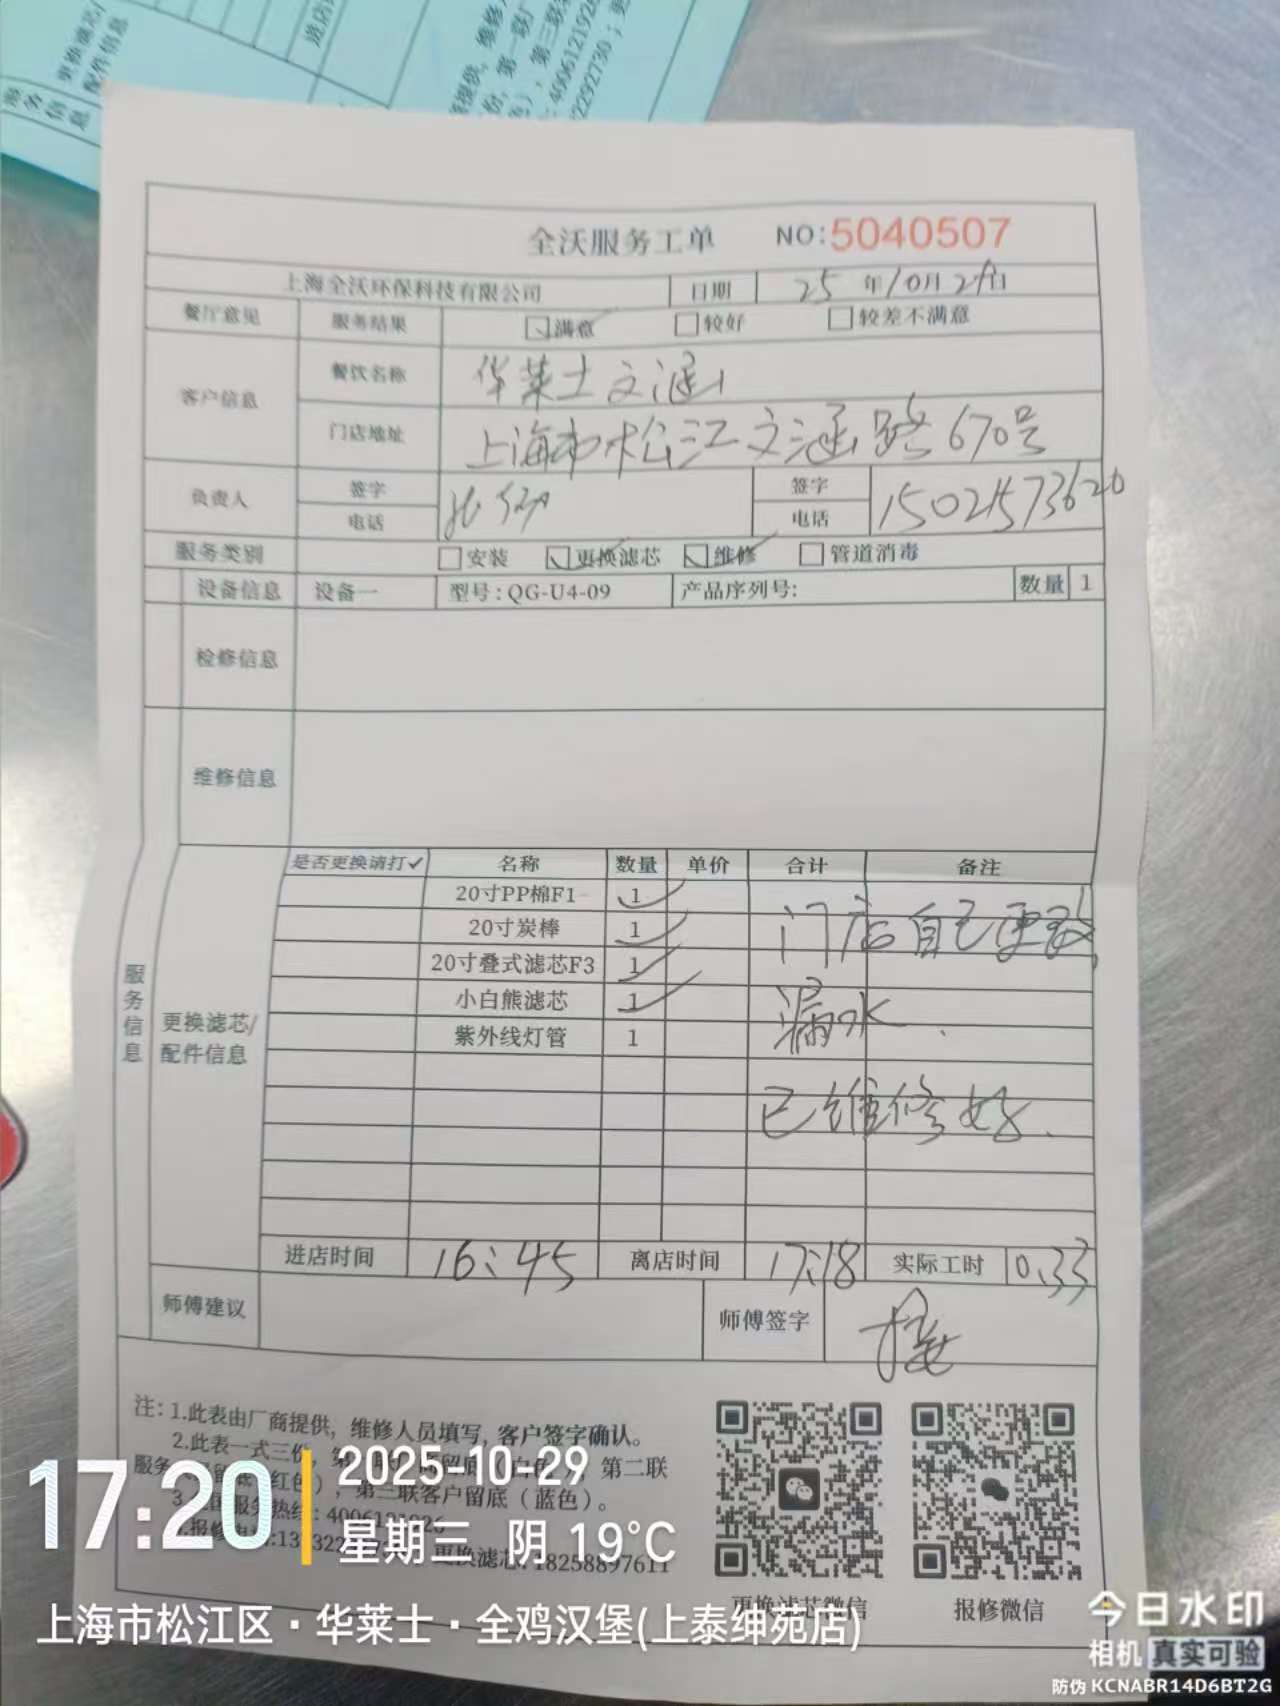 更换滤芯/
配件信息
服务信息
全沃服务工单 NO:5040507
上海全沃环保科技有限公司 日期 25年10月29日
餐厅意见 服务结果 满意 较好 较差不满意
客户信息 餐饮名称 华莱士文涵
门店地址 上海市松江文涵路670号
负责人 签字 签字
电话 电话 15021573620
服务类别 安装 更换滤芯 维修 管道消毒
设备信息 设备一 型号:QG-U4-09 产品序列号: 数量 1
检修信息
维修信息
服务信息
更换滤芯/
配件信息
是否更换请打✓ 名称 数量 单价 合计 备注
20寸PP棉F1 1
20寸炭棒 1 门店自己更换
20寸叠式滤芯F3 1
小白熊滤芯 1 漏水
紫外线灯管 1
已维修好
进店时间 16:45 离店时间 17:18 实际工时 0.33
师傅建议 师傅签字
注:1.此表由厂商提供,维修人员填写,客户签字确认。
2.此表一式三份,第
第二联
服务
第三联客户留底(蓝色)。
服务热线:4006121926
更换滤芯:18258897611
更换滤芯微信 报修微信
17:20
2025-10-29
星期三 阴 19°C
上海市松江区·华莱士·全鸡汉堡(上泰绅苑店)
今日水印
相机 真实可验
防伪 KCNABR14D6BT2G